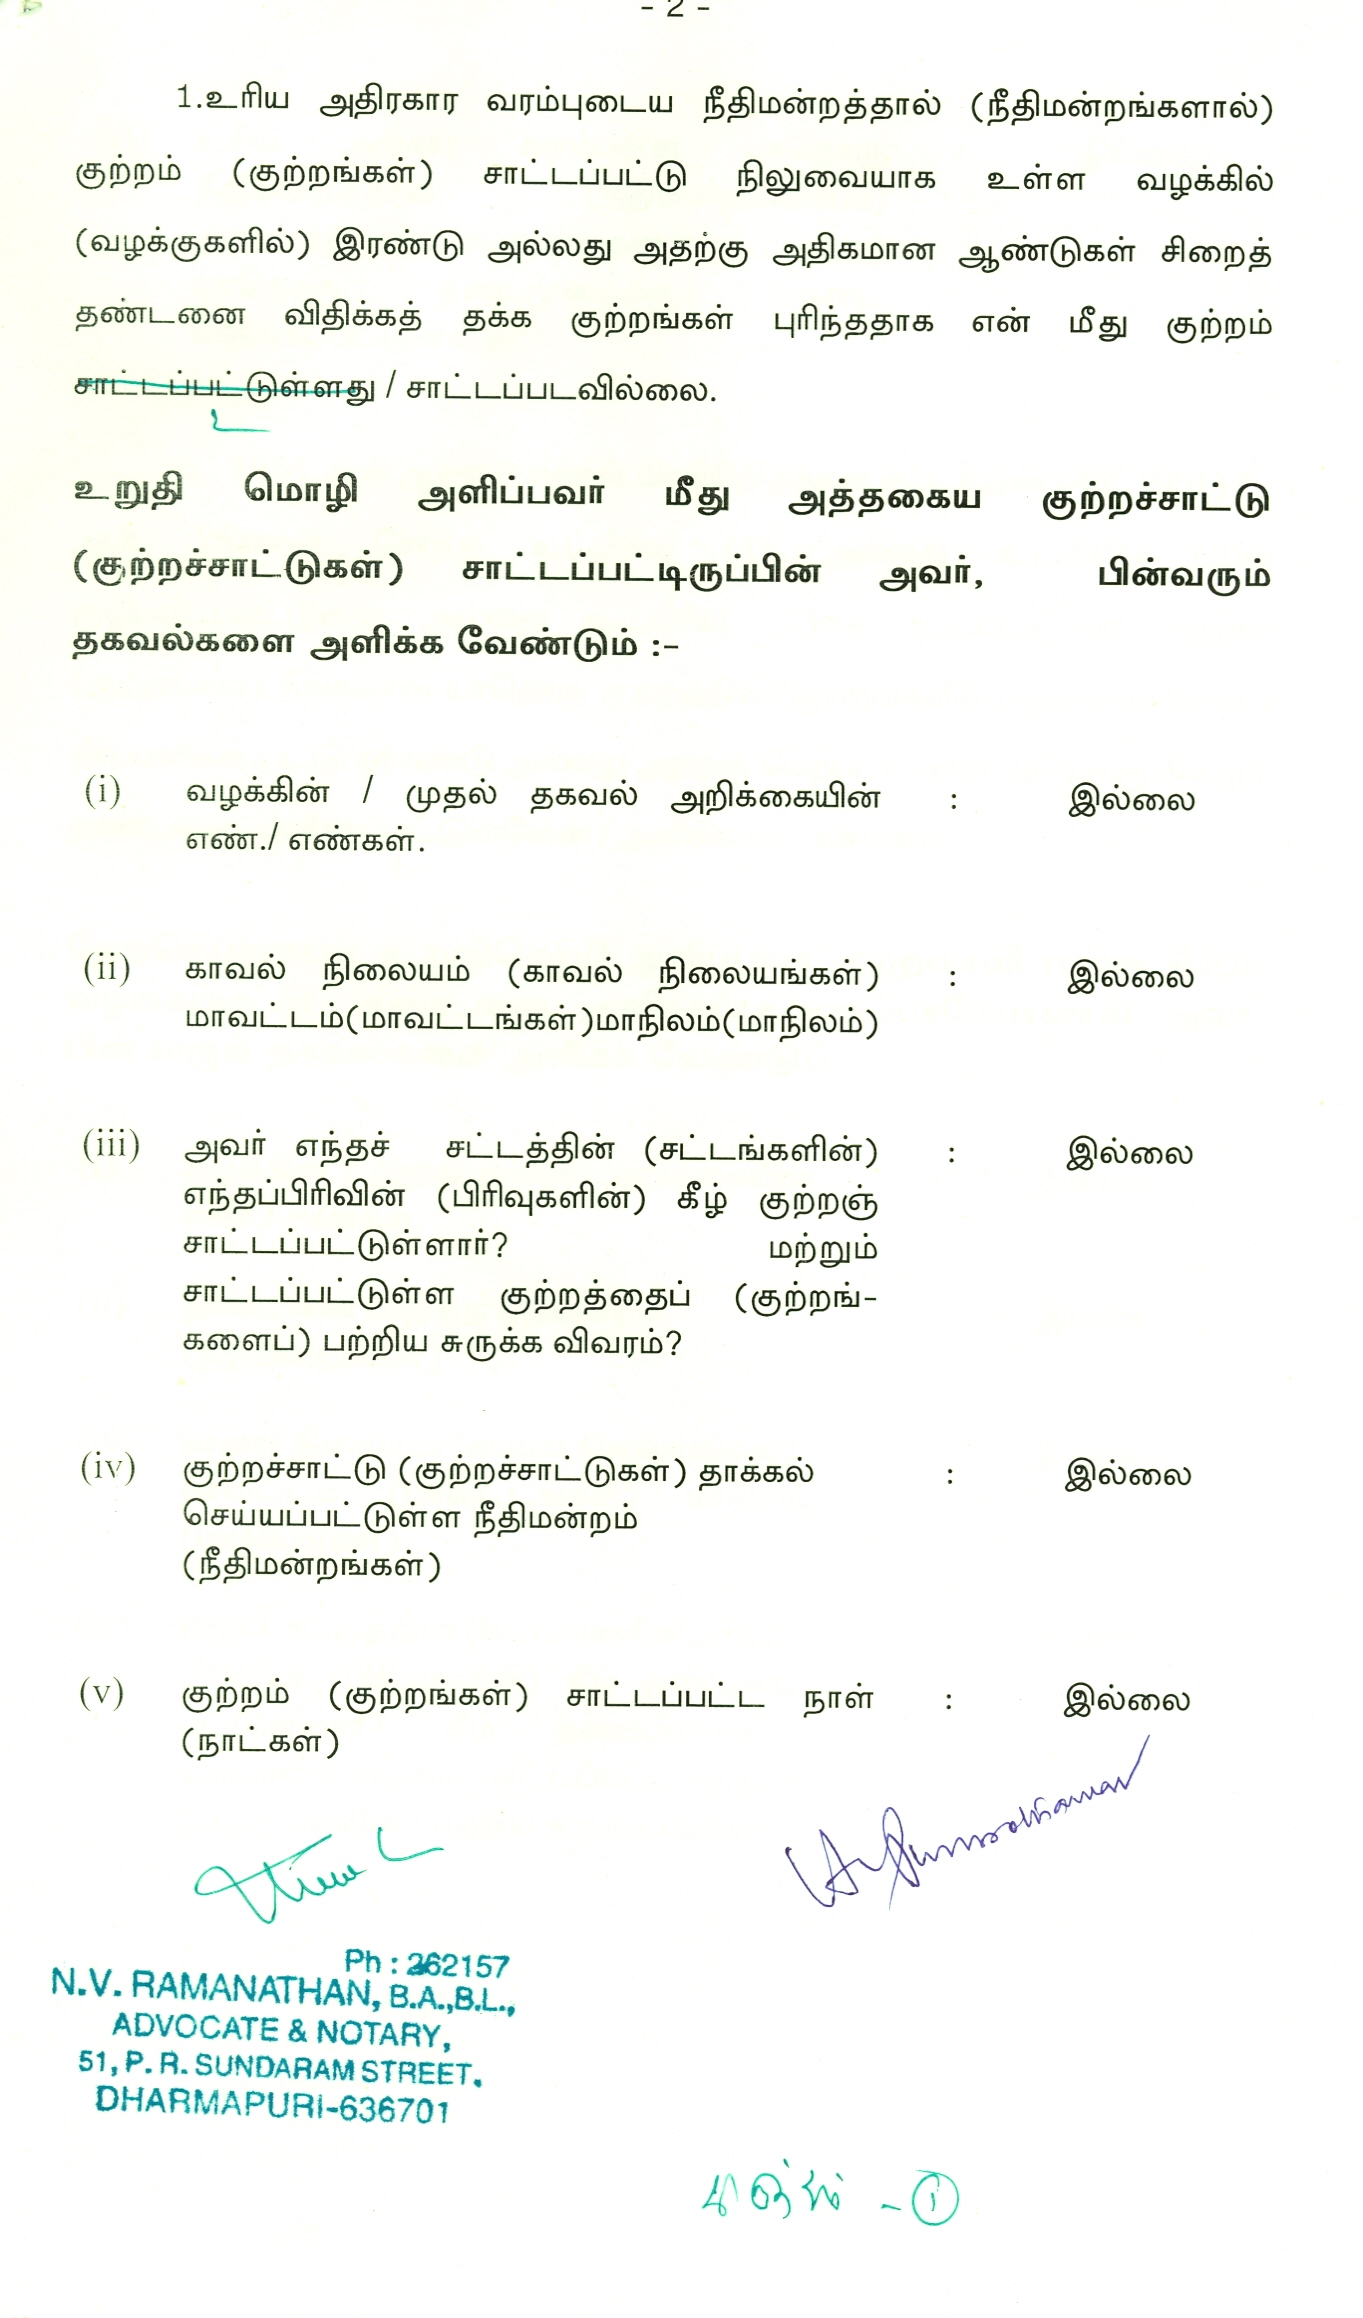 - 2 -
1.உரிய அதிரகார வரம்புடைய நீதிமன்றத்தால் (நீதிமன்றங்களால்)
குற்றம் (குற்றங்கள்) சாட்டப்பட்டு நிலுவையாக உள்ள வழக்கில்
(வழக்குகளில்) இரண்டு அல்லது அதற்கு அதிகமான ஆண்டுகள் சிறைத்
தண்டனை விதிக்கத் தக்க குற்றங்கள் புரிந்ததாக என் மீது குற்றம்
சாட்டப்பட்டுள்ளது / சாட்டப்படவில்லை.
உறுதி மொழி அளிப்பவர் மீது அத்தகைய குற்றச்சாட்டு
(குற்றச்சாட்டுகள்) சாட்டப்பட்டிருப்பின் அவர், பின்வரும்
தகவல்களை அளிக்க வேண்டும் :-
(i) வழக்கின் / முதல் தகவல் அறிக்கையின் : இல்லை
எண்./ எண்கள்.
(ii) காவல் நிலையம் (காவல் நிலையங்கள்) : இல்லை
மாவட்டம்(மாவட்டங்கள்)மாநிலம்(மாநிலம்)
(iii) அவர் எந்தச் சட்டத்தின் (சட்டங்களின்) : இல்லை
எந்தப்பிரிவின் (பிரிவுகளின்) கீழ் குற்றஞ்
சாட்டப்பட்டுள்ளார்? மற்றும்
சாட்டப்பட்டுள்ள குற்றத்தைப் (குற்றங்-
களைப்) பற்றிய சுருக்க விவரம்?
(iv) குற்றச்சாட்டு (குற்றச்சாட்டுகள்) தாக்கல் : இல்லை
செய்யப்பட்டுள்ள நீதிமன்றம்
(நீதிமன்றங்கள்)
(v) குற்றம் (குற்றங்கள்) சாட்டப்பட்ட நாள் : இல்லை
(நாட்கள்)
Ph : 262157
N.V. RAMANATHAN, B.A.,B.L.,
ADVOCATE & NOTARY,
51, P. R. SUNDARAM STREET.
DHARMAPURI-636701